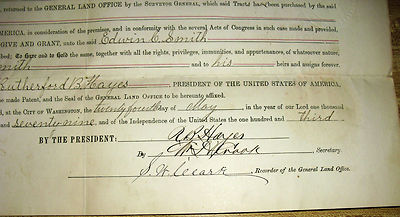 returned to the GENERAL LAND OFFICE by the SURVEYOR GENERAL, which said Tract has been purchased by the said
AMERICA, in consideration of the premises, and in conformity with the several Acts of Congress in such case made and provided,
GIVE AND GRANT, unto the said Edwin C. Smith
TO HOLD the same, together with all the rights, privileges, immunities, and appurtenances, of whatsoever nature,
Smith and to his heirs and assigns forever.
Rutherford B. Hayes, PRESIDENT OF THE UNITED STATES OF AMERICA,
be made Patent, and the Seal of the GENERAL LAND OFFICE to be hereunto affixed.
at the CITY OF WASHINGTON, the twenty fourth day of May in the year of our Lord one thousand
seventy nine, and of the Independence of the United States the one hundred and third.
BY THE PRESIDENT: R B Hayes
By Wm H Crook, Secretary.
S. W. Clark, Recorder of the General Land Office.